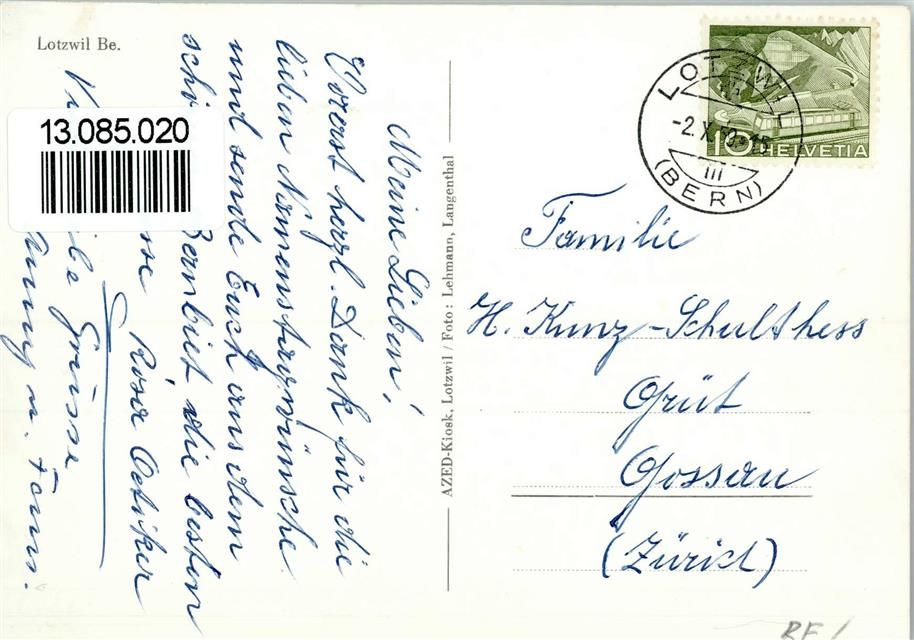 Lotzwil Be.
13.085.020
Meine Lieben!
Vorerst herzl. Dank für die
lieben Namenstagwünsche
und sende Euch aus dem
Bernbiet die besten
Rösa Oetiker
Grüsse
u. Fam.
AZED-Kiosk, Lotzwil / Foto: Lehmann, Langenthal
LOTZWIL
-2.X.
(BERN)
10 HELVETIA
Familie
H. Kunz-Schulthess
Grüt
Gossau
(Zürich)